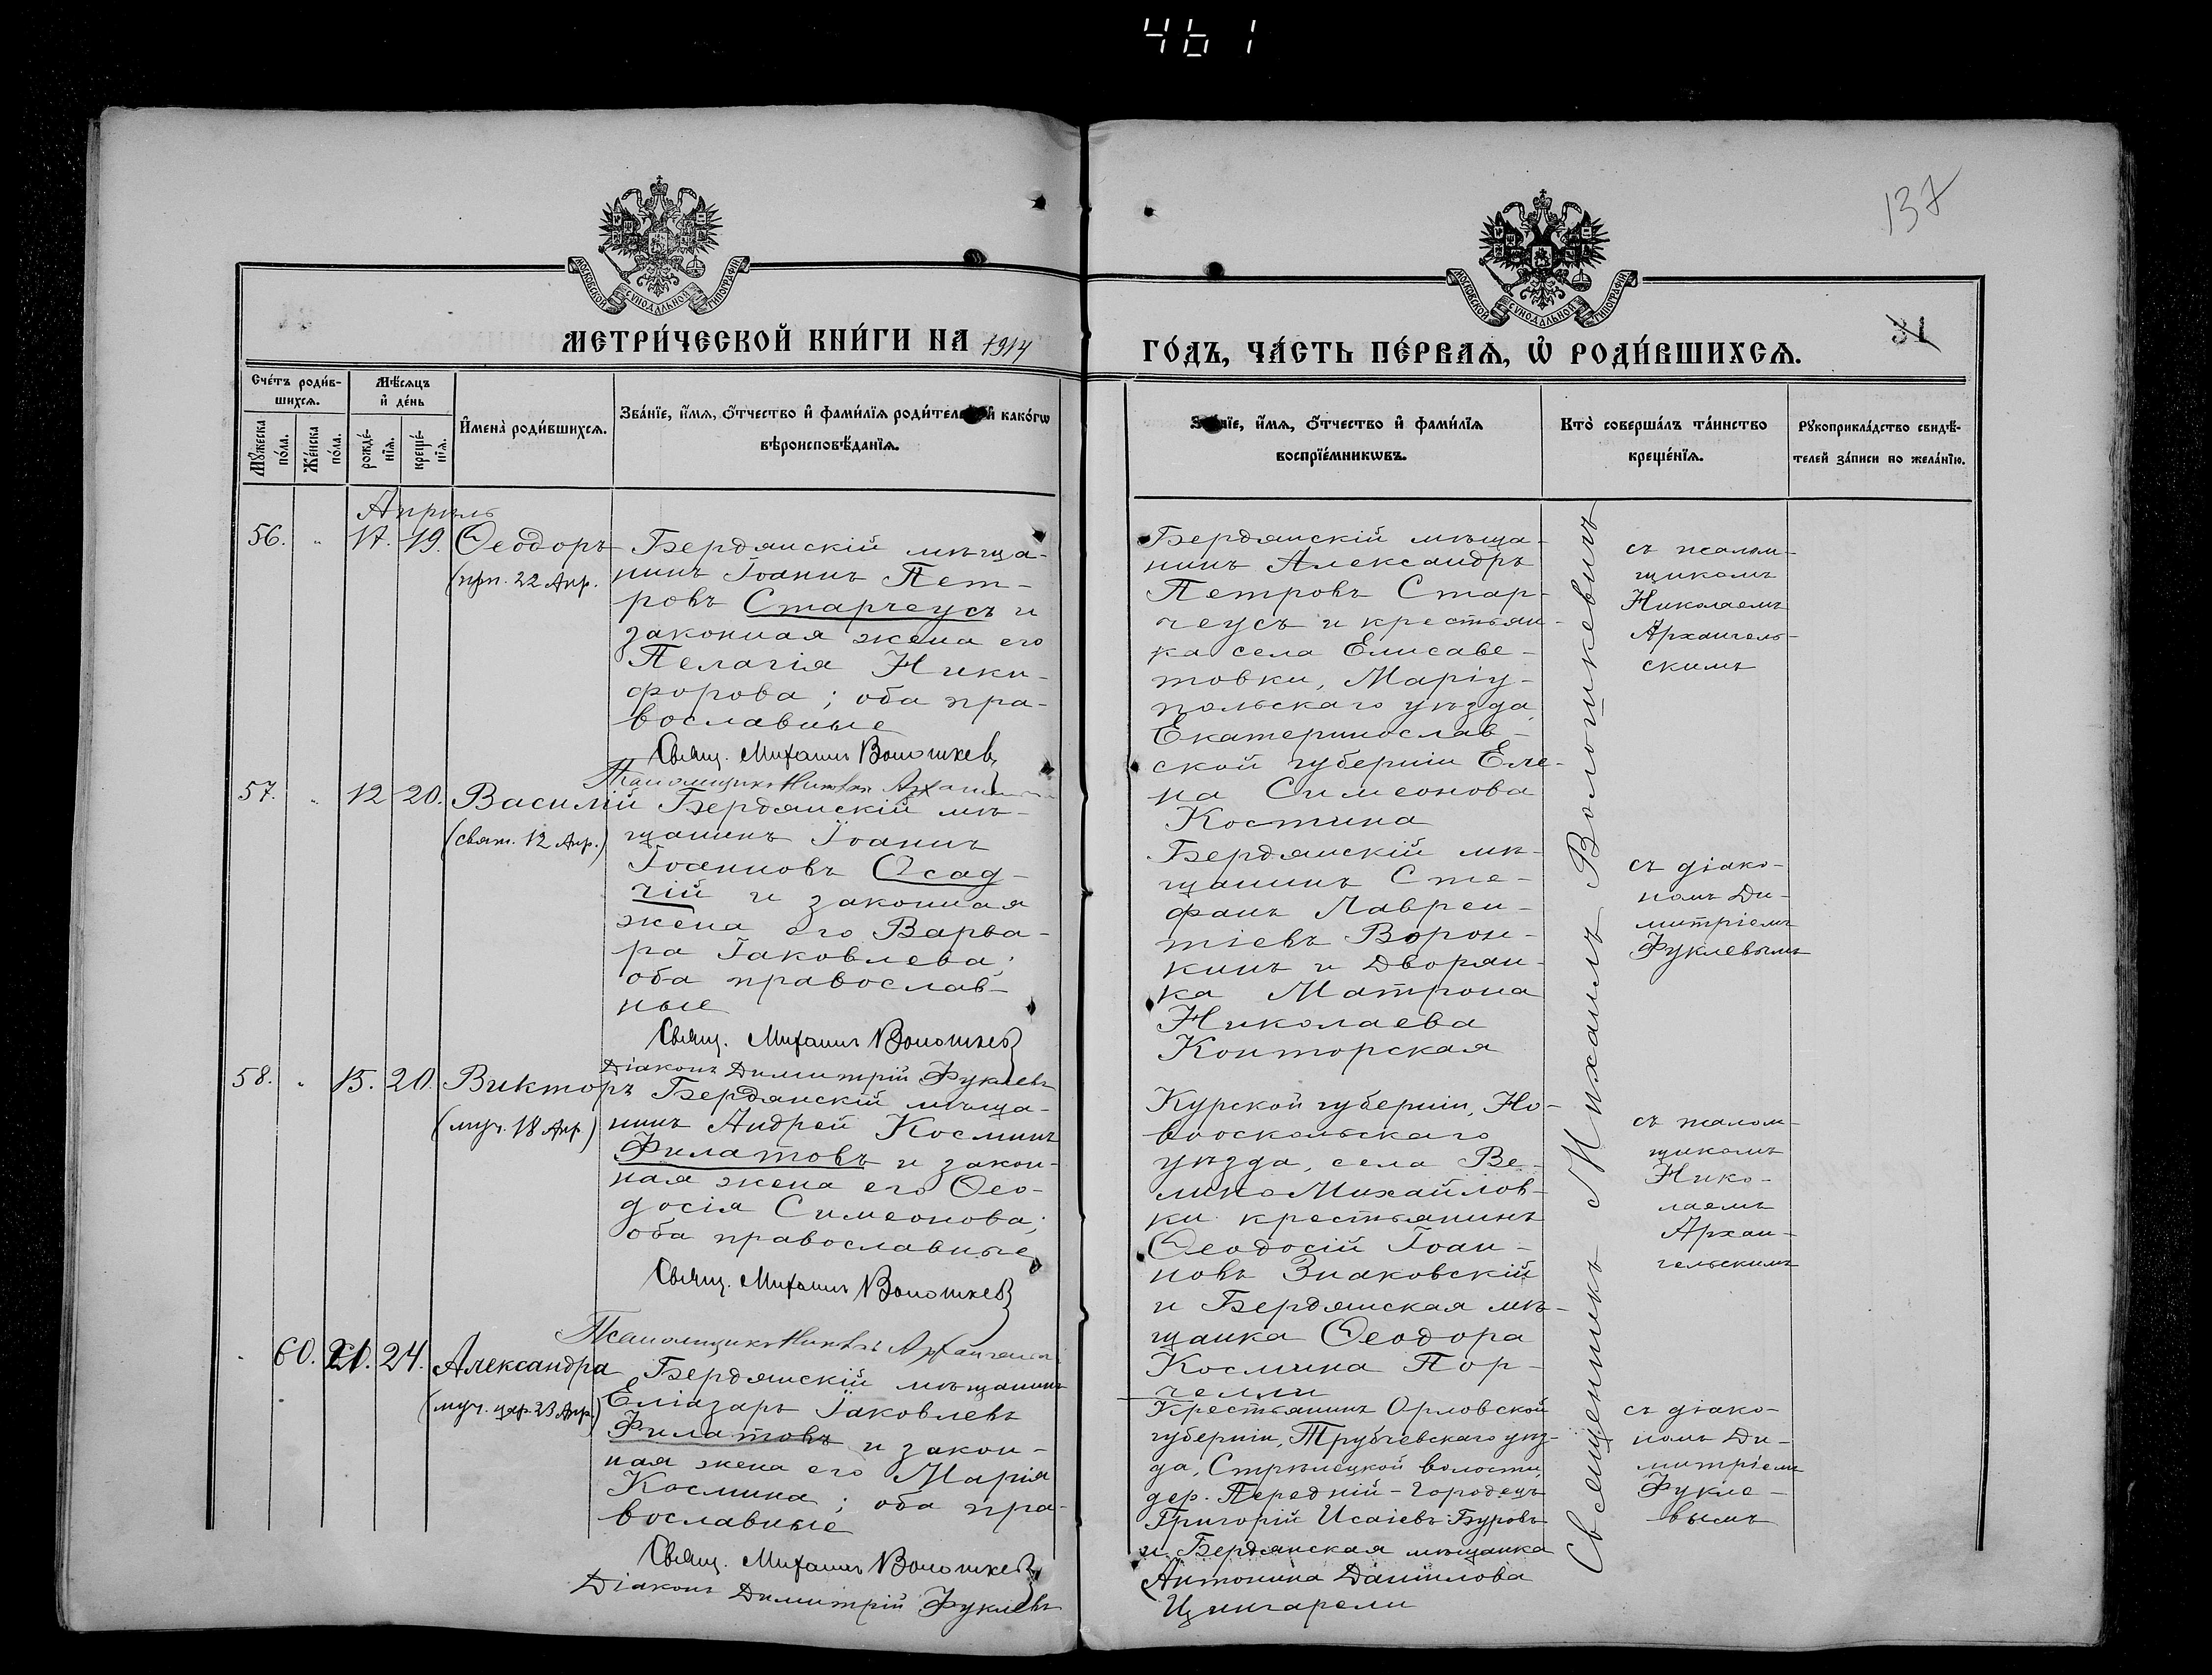 461
137
МОСКОВСКОЙ СѴНОДАЛЬНОЙ ТИПОГРАФИИ
МЕТРИ́ЧЕСКОЙ КНИ́ГИ НА 1914
МОСКОВСКОЙ СѴНОДАЛЬНОЙ ТИПОГРАФИИ
ГО́ДЪ, ЧА́СТЬ ПЕ́РВАѦ, Ѡ҆ РОДИ́ВШИХСѦ.
31
Сче́тъ роди́в-
шихсѧ.
Мꙋ́жеска по́ла.
Же́нска по́ла.
Мѣ́сѧцъ
и҆ де́нь
рожде́-
нїѧ.
креще́-
нїѧ.
И҆мена̀ роди́вшихсѧ.
Зва́нїе, и҆́мѧ, ѻ҆́тчество и҆ фами́лїѧ роди́тел и҆ како́гѡ
вѣроисповѣ́данїѧ.
нїе, и҆́мѧ, ѻ҆́тчество и҆ фами́лїѧ
воспрїе́мникѡвъ.
Кто̀ соверша́лъ та́инство
креще́нїѧ.
Рꙋкоприкла́дство свидѣ́-
телей за́писи по жела́нїю.
Апрѣль
56. " 17. 19. Ѳеодоръ
(прп. 22 Апр.
Бердянскій мѣща-
нинъ Іоаннъ Пет-
ровъ Старчеусъ и
законная жена его
Пелагія Ники-
форова; оба пра-
вославные
Свящ. Михаилъ Волошкев
Псаломщикъ Николай
Бердянскій мѣща-
нинъ Александръ
Петровъ Стар-
чеусъ и крестьян-
ка села Елисаве-
товки, Маріу-
польскаго уѣзда,
Екатеринослав-
ской губерніи Еле-
на Симеонова
Костина
съ псалом-
щикомъ
Николаемъ
Архангель-
скимъ
57. " 12 20. Василій
(свят. 12 Апр.)
Бердянскій мѣ-
щанинъ Іоаннъ
Іоанновъ Осад-
чій и законная
жена его Варва-
ра Іаковлева;
оба православ-
ные
Свящ. Михаилъ Волошкев
Діаконъ Димитрій Фуклевъ
Бердянскій мѣ-
щанинъ Сте-
фанъ Лаврен-
тіевъ Ворон-
кинъ и Дворян-
ка Матрона
Николаева
Конторская
съ діако-
номъ Ди-
митріемъ
Фуклевымъ
58. " 15. 20. Викторъ
(муч. 18 Апр.)
Бердянскій мѣща-
нинъ Андрей Косминъ
Филатовъ и закон-
ная жена его Ѳео-
досія Симеонова;
оба православные
Свящ. Михаилъ Волошкев
Псаломщикъ Николай Архангельск
Курской губерніи, Но-
вооскольскаго
уѣзда, села Ве-
лико Михайлов-
ки крестьянинъ
Ѳеодосій Іоан-
новъ Знаковскій
и Бердянская мѣ-
щанка Ѳеодора
Космина Пор-
челли
съ псалом-
щикомъ
Нико-
лаемъ
Архан-
гельскимъ
" 60. 21. 24. Александра
(муч. цар. 23 Апр.)
Бердянскій мѣщанинъ
Еліазаръ Іаковлевъ
Филатовъ и закон-
ная жена его Марія
Космина; оба пра-
вославные
Свящ. Михаилъ Волошкев
Діаконъ Димитрій Фуклевъ
Крестьянинъ Орловской
губерніи, Трубчевскаго уѣз-
да, Стрѣлецкой волости,
дер. Передній-Городецъ
Григорій Исаіевъ Буровъ
и Бердянская мѣщанка
Антонина Даніилова
Цингарели
съ діако-
номъ Ди-
митріемъ
Фукле-
вымъ
Священникъ Михаилъ Волошкевичъ